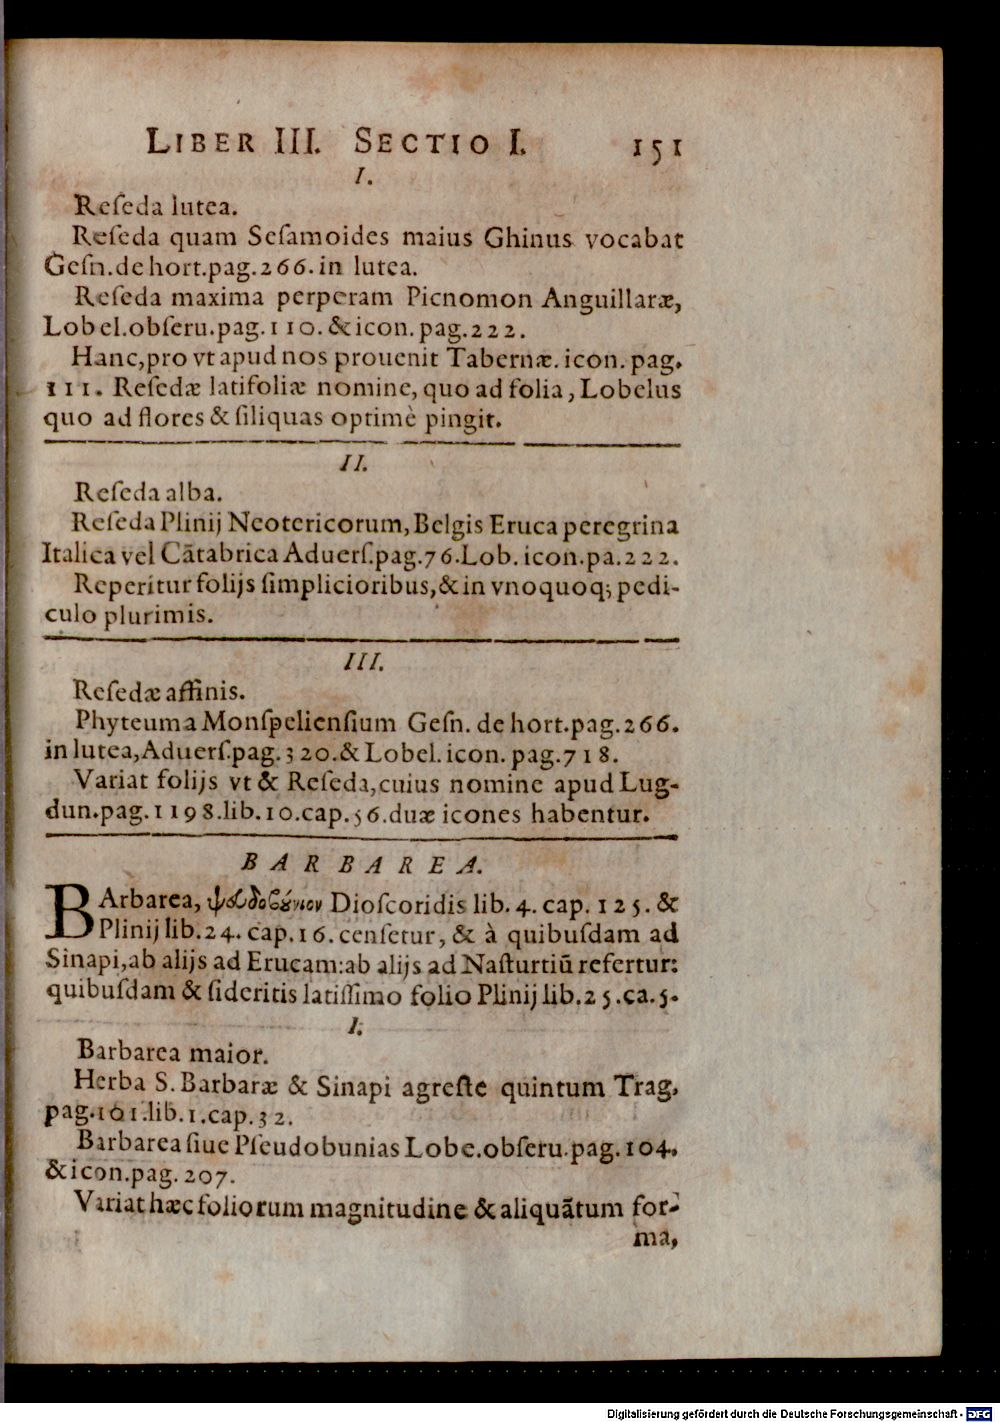 LIBER III. SECTIO I. 151
I.
Reſeda lutea.
Reſeda quam Seſamoides maius Ghinus vocabat
Geſn.de hort.pag.266.in lutea.
Reſeda maxima perperam Picnomon Anguillaræ,
Lobel.obſeru.pag.110.&icon.pag.222.
Hanc,pro vt apud nos prouenit Tabernæ.icon.pag.
111. Reſedæ latifoliæ nomine, quo ad folia, Lobelus
quo ad flores & ſiliquas optimè pingit.
II.
Reſeda alba.
Reſeda Plinij Neotericorum, Belgis Eruca peregrina
Italica vel Cãtabrica Aduerſ.pag.76.Lob.icon.pa.222.
Reperitur folijs ſimplicioribus,&in vnoquoq; pedi-
culo plurimis.
III.
Reſedæ affinis.
Phyteuma Monſpelienſium Geſn. de hort.pag.266.
in lutea,Aduerſ.pag.320.& Lobel.icon.pag.718.
Variat folijs vt & Reſeda,cuius nomine apud Lug-
dun.pag.1198.lib.10.cap.56.duæ icones habentur.
BARBAREA.
BArbarea, Dioſcoridis lib.4. cap. 125. &
Plinij lib.24. cap.16. cenſetur, & à quibuſdam ad
Sinapi,ab alijs ad Erucam:ab alijs ad Naſturtiũ refertur:
quibuſdam & ſideritis latiſſimo folio Plinij lib.25.ca.5.
I.
Barbarea maior.
Herba S. Barbaræ & Sinapi agreſte quintum Trag.
pag.101.lib.1.cap.32.
Barbarea ſiue Pſeudobunias Lobe.obſeru.pag.104.
&icon.pag.207.
Variat hæc foliorum magnitudine & aliquãtum for-
ma,
Digitalisierung gefördert durch die Deutsche Forschungsgemeinschaft - DFG